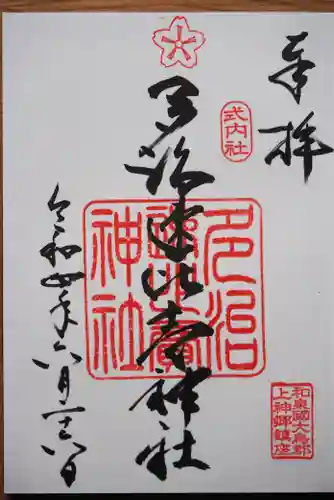 奉拝
式内社
多治速比売神社
多治
速比賣
神社
令和四年六月二十六日
和泉國大鳥郡
上神郷鎮座